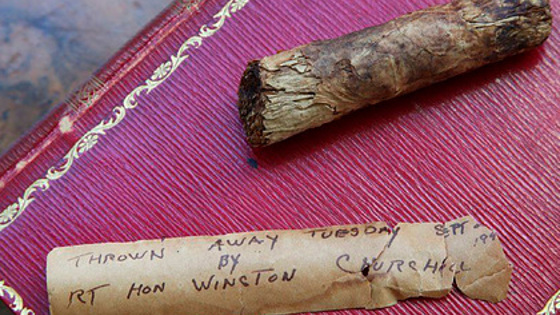 THROWN AWAY TUESDAY SEPT
BY
RT HON WINSTON CHURCHILL